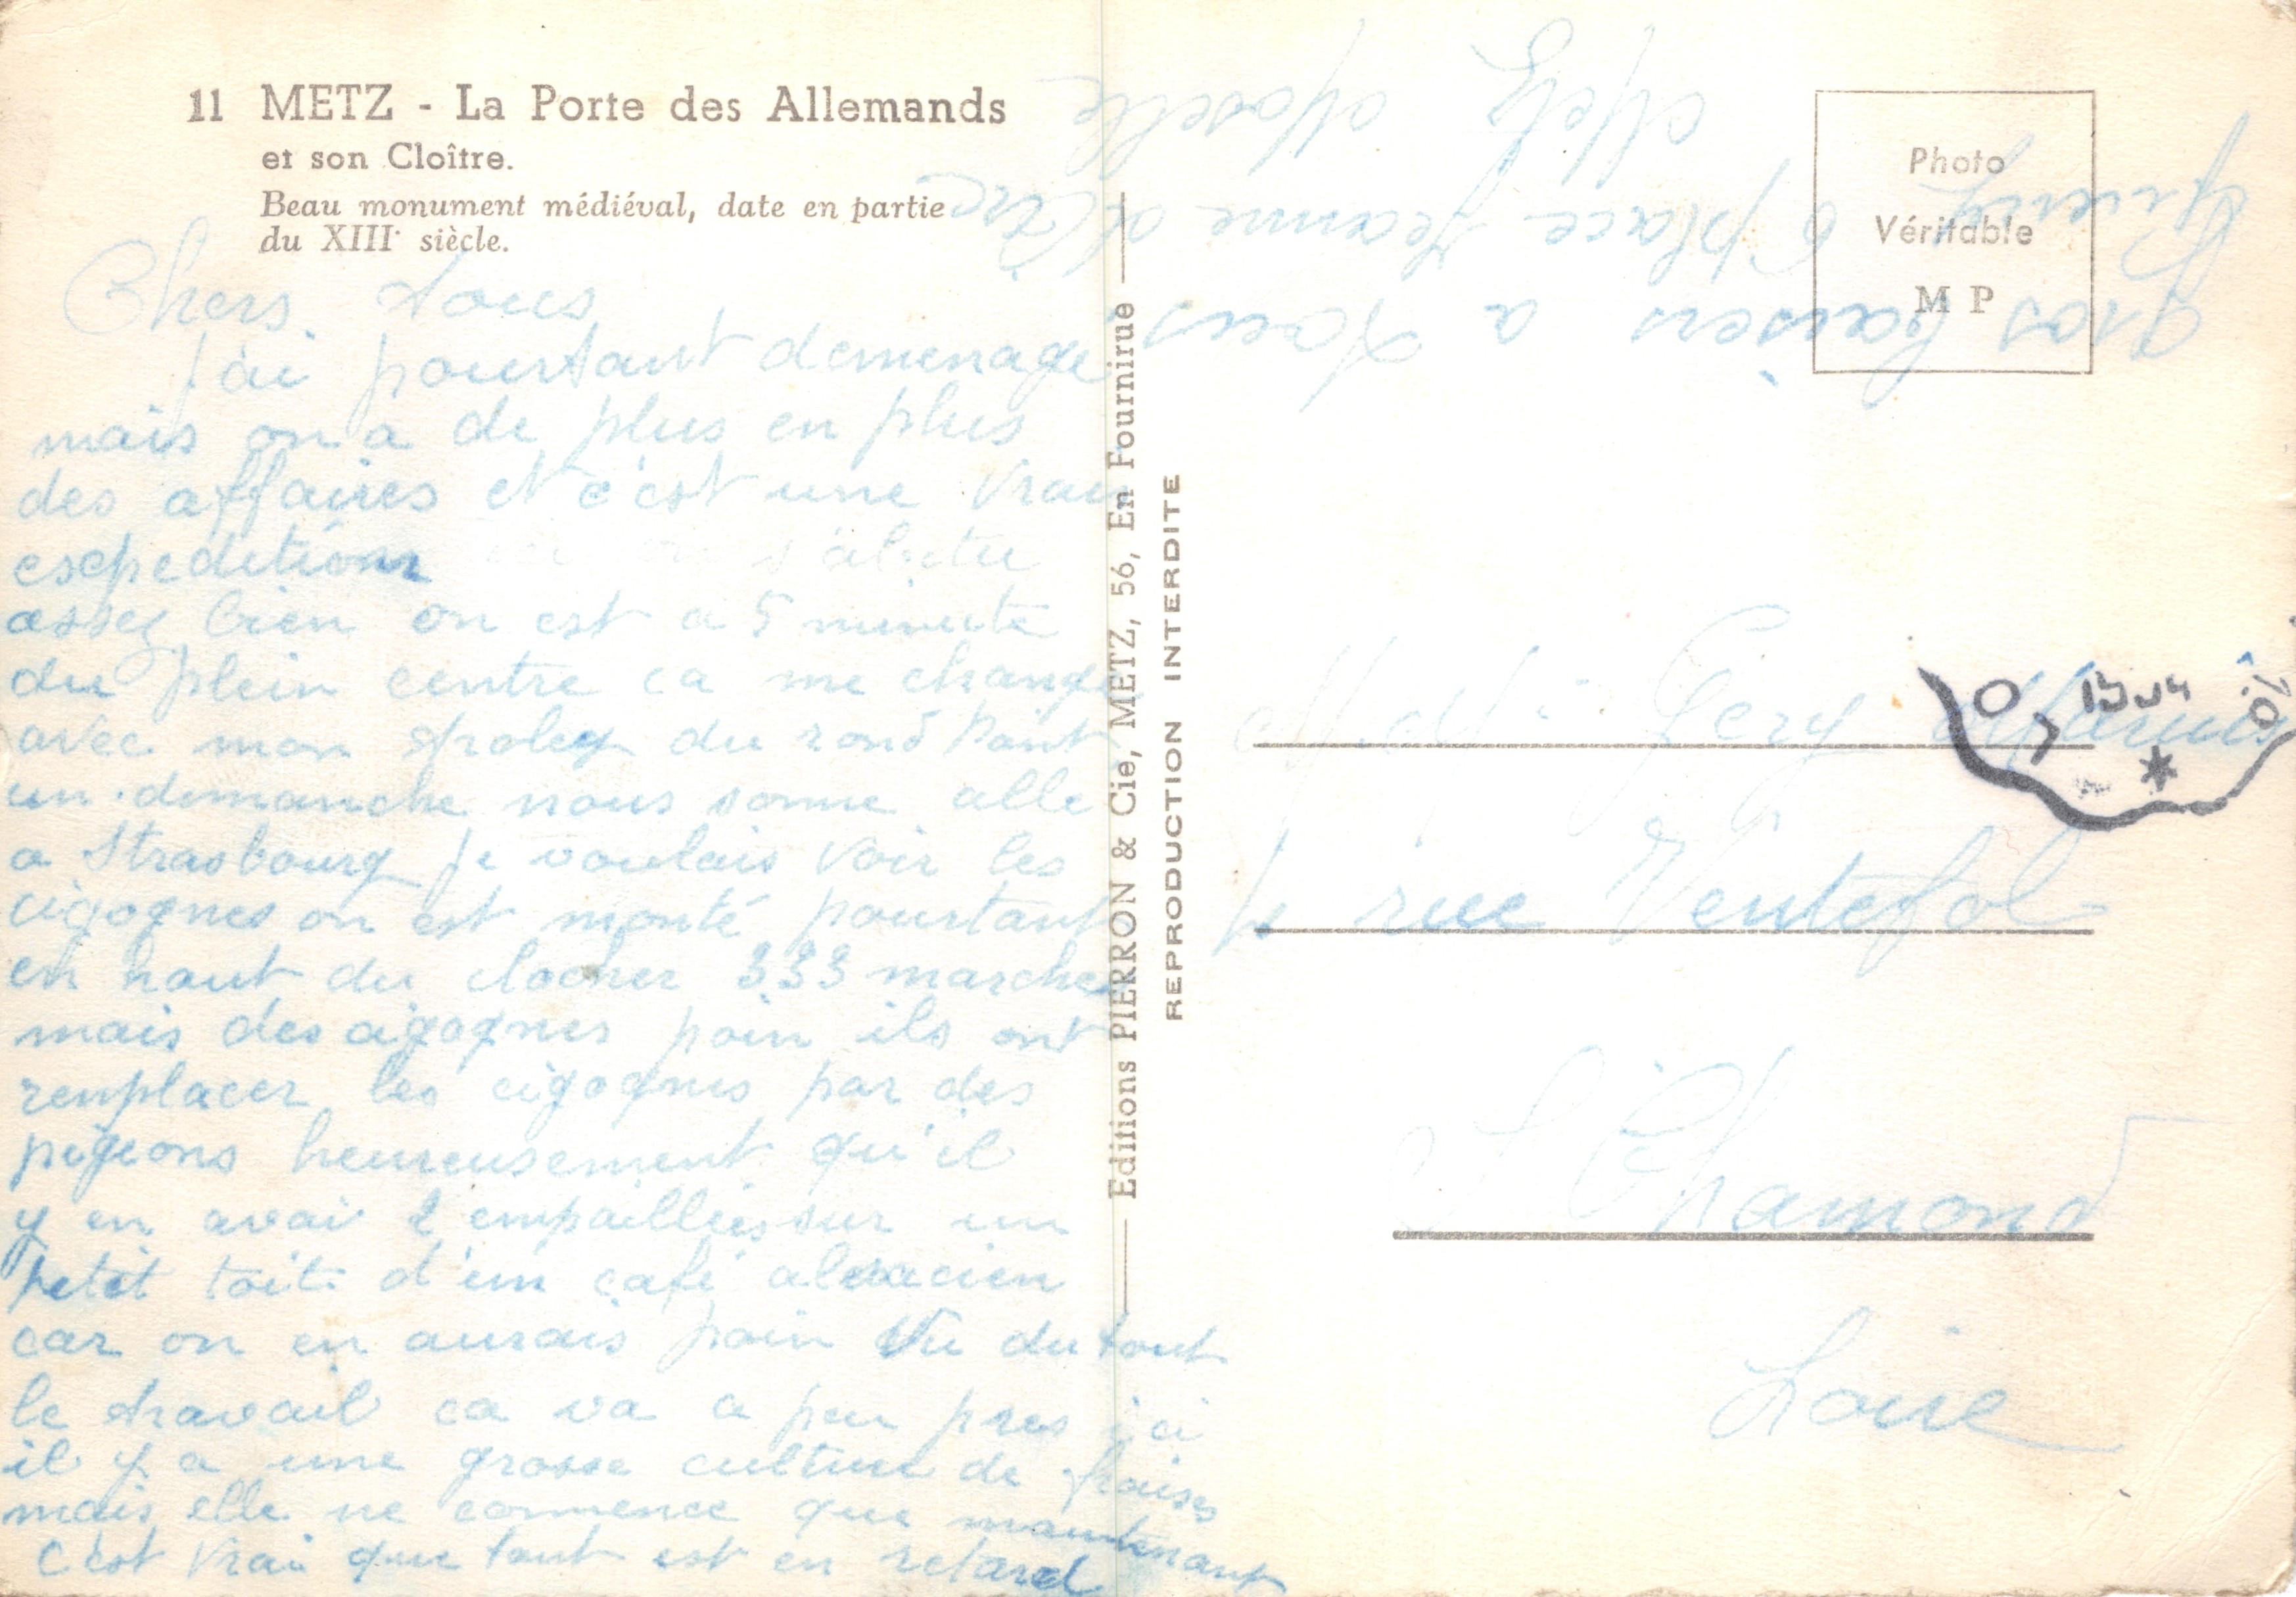 11 METZ - La Porte des Allemands
et son Cloître.
Beau monument médiéval, date en partie
du XIIIe siècle.
Chers tous
j'ai pourtant demenage
mais on a de plus en plus
des affaires et c'est une vrai
escpedition s'abitu
assez bien on est a 5 minute
du plein centre ca me change
avec mon du rond Point
un dimanche nous somme alle
a Strasbourg je voulais voir les
cigognes on est monté pourtant
en haut du clocher 333 marches
mais des cigognes poin ils ont
remplacer les cigognes par des
pigeons heureusement qu'il
y en avai 2 empaillées sur un
petit toit d'un café alsacien
car on en aurais poin vu du tout
le travail ca va a peu pres ici
il y a une grosse culture de fraises
mais elle ne commence que maintenant
c'est vrai que tout est en retard
gros baisers a tous
6 place Jeanne d'Arc
Metz Moselle
Editions PIERRON & Cie, METZ, 56, En Fournirue
REPRODUCTION INTERDITE
Photo
Véritable
M P
Gery
4 rue Ventefol
St Chamond
Loire